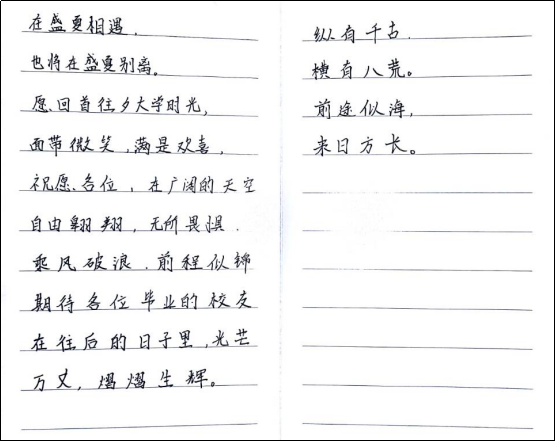 在盛夏相遇,
也将在盛夏别离。
愿回首往夕大学时光,
面带微笑,满是欢喜,
祝愿各位,在广阔的天空
自由翱翔,无所畏惧.
乘风破浪.前程似锦
期待各位毕业的校友
在往后的日子里,光芒
万丈,熠熠生辉。
纵有千古.
横有八荒。
前途似海,
来日方长。